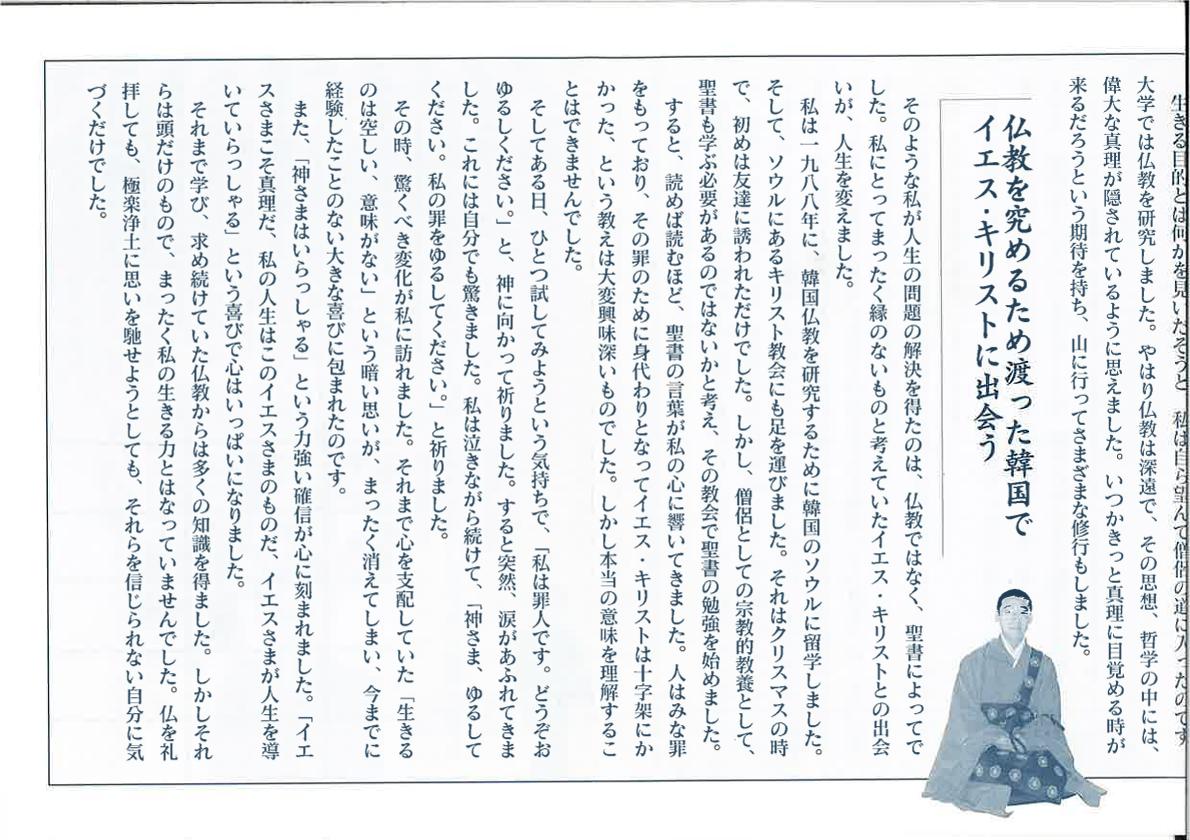 生きる目的とは何かを見いだそうと、私は自ら望んで僧侶の道に入ったのです。
大学では仏教を研究しました。やはり仏教は深遠で、その思想、哲学の中には、
偉大な真理が隠されているように思えました。いつかきっと真理に目覚める時が
来るだろうという期待を持ち、山に行ってさまざまな修行もしました。
仏教を究めるため渡った韓国で
イエス・キリストに出会う
そのような私が人生の問題の解決を得たのは、仏教ではなく、聖書によってで
した。私にとってまったく縁のないものと考えていたイエス・キリストとの出会
いが、人生を変えました。
私は一九八八年に、韓国仏教を研究するために韓国のソウルに留学しました。
そして、ソウルにあるキリスト教会にも足を運びました。それはクリスマスの時
で、初めは友達に誘われただけでした。しかし、僧侶としての宗教的教養として、
聖書も学ぶ必要があるのではないかと考え、その教会で聖書の勉強を始めました。
すると、読めば読むほど、聖書の言葉が私の心に響いてきました。人はみな罪
をもっており、その罪のために身代わりとなってイエス・キリストは十字架にか
かった、という教えは大変興味深いものでした。しかし本当の意味を理解するこ
とはできませんでした。
そしてある日、ひとつ試してみようという気持ちで、「私は罪人です。どうぞお
ゆるしください。」と、神に向かって祈りました。すると突然、涙があふれてきま
した。これには自分でも驚きました。私は泣きながら続けて、「神さま、ゆるして
ください。私の罪をゆるしてください。」と祈りました。
その時、驚くべき変化が私に訪れました。それまで心を支配していた「生きる
のは空しい、意味がない」という暗い思いが、まったく消えてしまい、今までに
経験したことのない大きな喜びに包まれたのです。
また、「神さまはいらっしゃる」という力強い確信が心に刻まれました。「イエ
スさまこそ真理だ、私の人生はこのイエスさまのものだ、イエスさまが人生を導
いていらっしゃる」という喜びで心はいっぱいになりました。
それまで学び、求め続けていた仏教からは多くの知識を得ました。しかしそれ
らは頭だけのもので、まったく私の生きる力とはなっていませんでした。仏を礼
拝しても、極楽浄土に思いを馳せようとしても、それらを信じられない自分に気
づくだけでした。